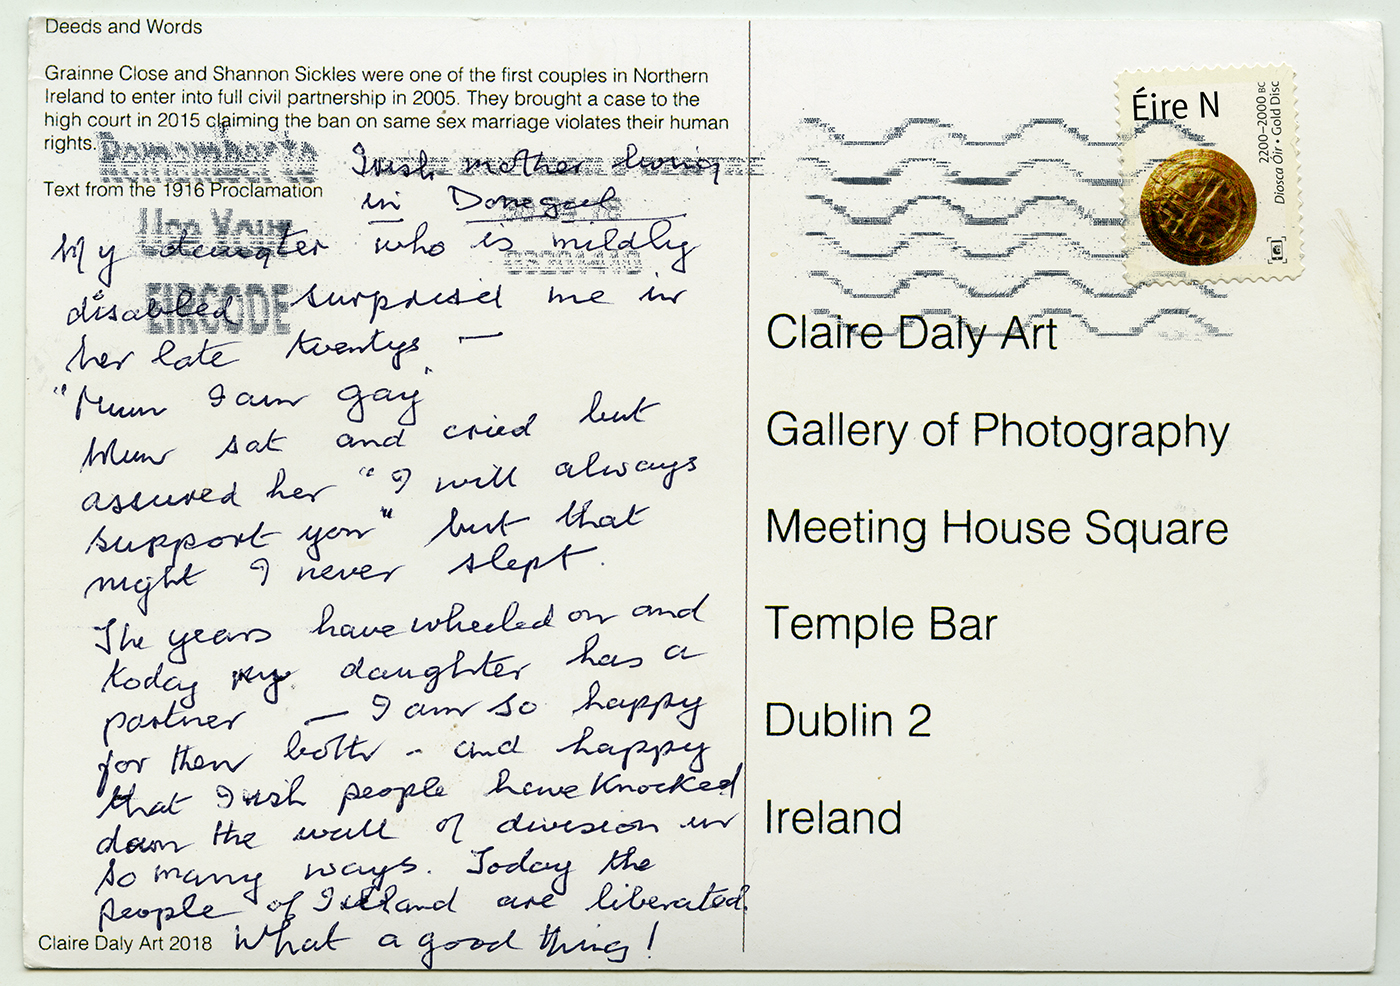 Deeds and Words
Grainne Close and Shannon Sickles were one of the first couples in Northern
Ireland to enter into full civil partnership in 2005. They brought a case to the
high court in 2015 claiming the ban on same sex marriage violates their human
rights.
Remember to
Text from the 1916 Proclamation
Use Your
EIRCODE
Irish mother living
in Donegal
My daugter who is mildly
disabled surprised me in
her late twentys —
"Mum I am gay"
Mum sat and cried but
assured her "I will always
support you" but that
night I never slept.
The years have wheeled on and
today my daughter has a
partner — I am so happy
for them both - and happy
that Irish people have knocked
down the wall of division in
so many ways. Today the
people of Ireland are liberated.
What a good thing!
Claire Daly Art 2018
Éire N
2200–2000 BC
Diosca Óir • Gold Disc
Claire Daly Art
Gallery of Photography
Meeting House Square
Temple Bar
Dublin 2
Ireland